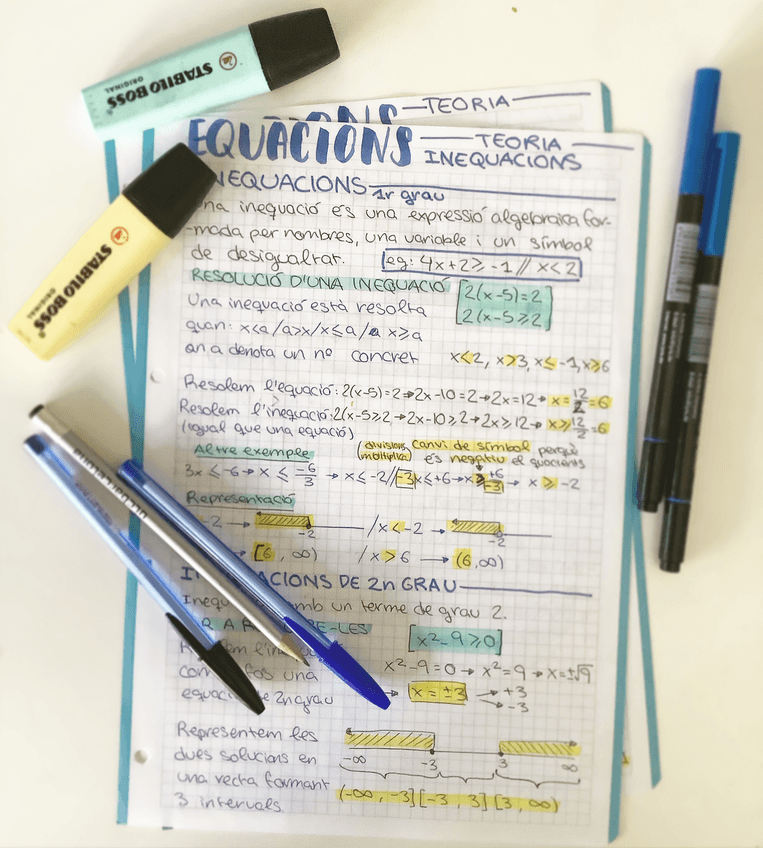 STABILO BOSS
ORIGINAL
TEORIA
EQUACIONS
TEORIA
INEQUACIONS
INEQUACIONS 1r grau
una inequació és una expressió algebraica for-
-mada per nombres, una variable i un símbol
de desigualtat. eg: 4x+2≥-1 // x<2
RESOLUCIÓ D'UNA INEQUACIÓ
2(x-5)=2
2(x-5≥2
Una inequació està resolta
quan: x<a/a>x/x≤a/a x≥a
on a denota un nº concret x<2, x>3, x≤-1, x≥6
Resolem l'equació: 2(x-5)=2→2x-10=2→2x=12→ x=12/2=6
Resolem l'inequació: 2(x-5≥2→2x-10≥2→2x≥12→ x≥12/2=6
(igual que una equació)
Altre exemple
divisions
multiplica
canvi de símbol perquè
és negatiu el quocients
3x≤-6→x≤-6/3→x≤-2//-3x≤+6→x≥+6/-3→ x≥-2
Representació
-2 → -2 /x<-2 → -2
→ [6, ∞) /x>6 → (6,∞)
CIONS DE 2n GRAU
Inequ mb un terme de grau 2.
RE-LES
[x²-9≥0]
com fos una
equació de 2n grau
x²-9=0→x²=9→x=±√9
→ x=±3 → +3
→ -3
Representem les
dues solucions en
una recta formant
3 intervals.
-∞ -3 3 ∞
(-∞, -3][-3, 3][3, ∞)
STABILO BOSS
ORIGINAL